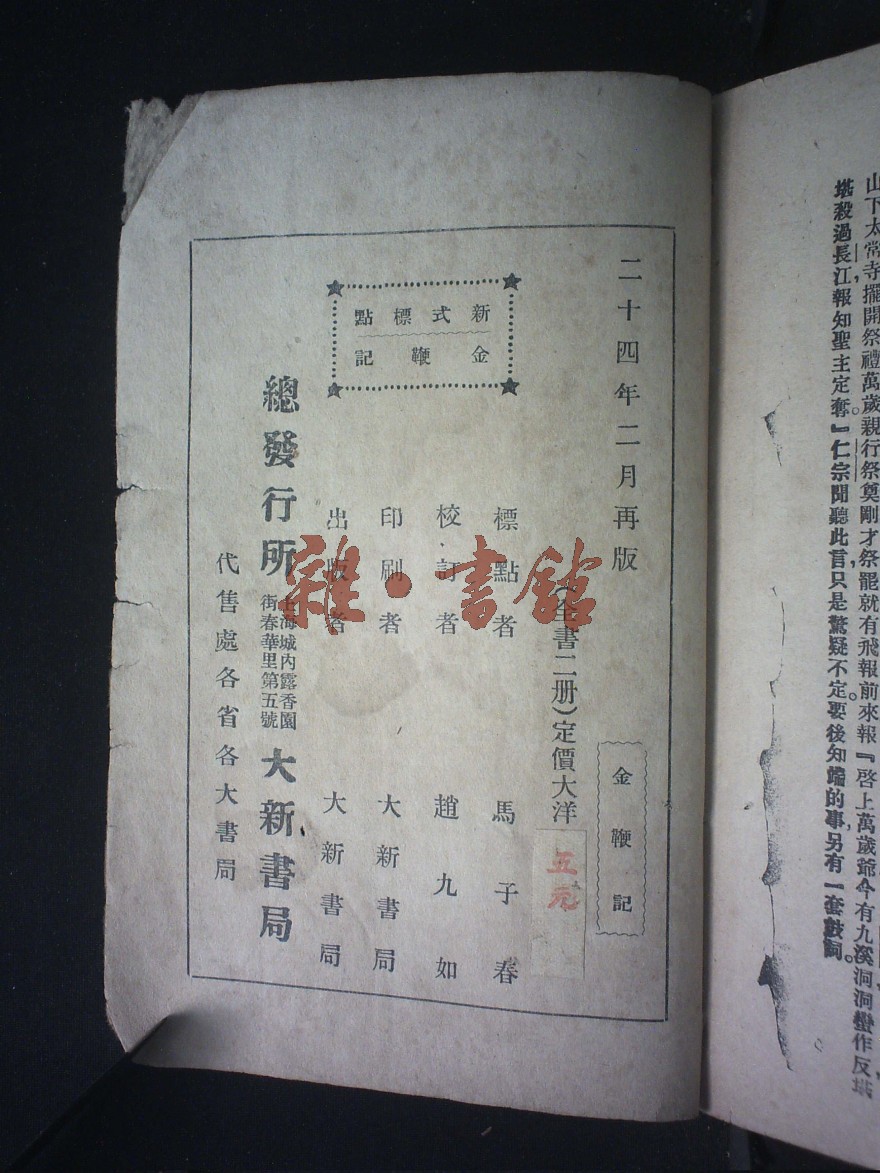 山下太常寺擺開祭禮萬歲親行祭奠剛才祭罷就有飛報前來報『啓上萬歲爺今有九溪洞洞蠻作反
塔殺過長江報知聖主定奪。』仁宗聞聽此言只是驚疑不定要後知端的事另有一套鼓詞。
二十四年二月再版
金鞭記
(全書二册)定價大洋
五元
標點者 馬子春
校訂者 趙九如
印刷者 大新書局
出版者 大新書局
新式標點
金鞭記
總發行所
上海城內露香園
街春華里第五號
大新書局
代售處各省各大書局
雜·書館